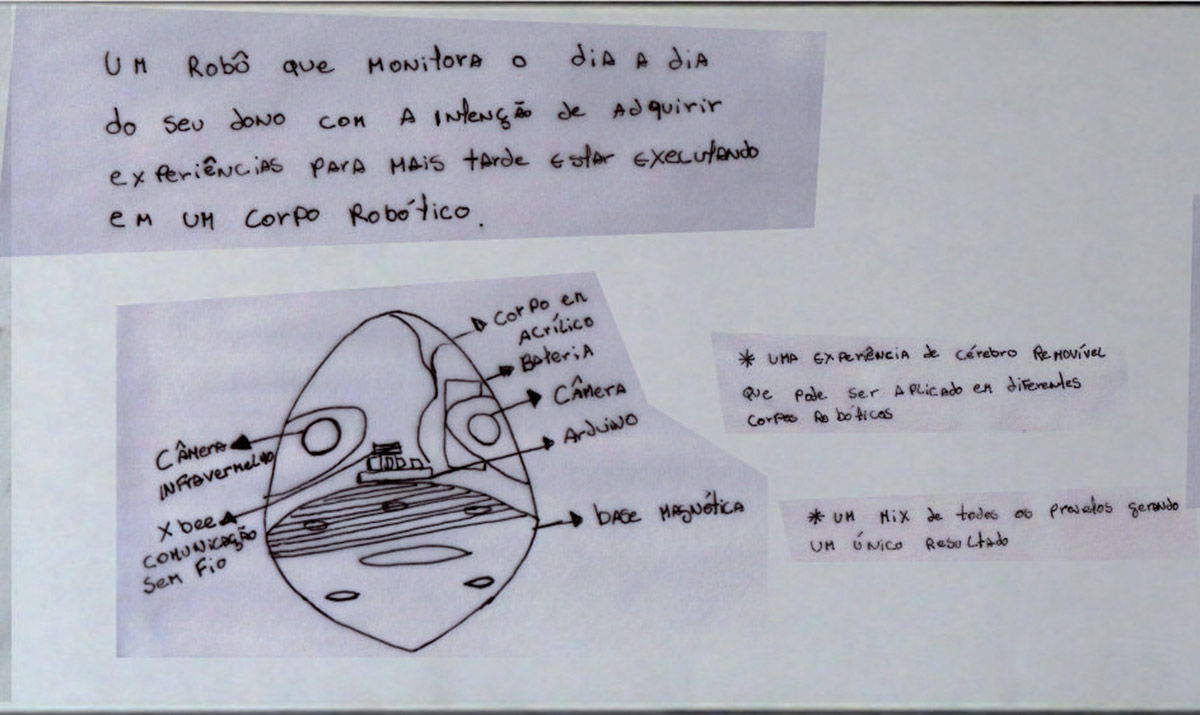 UM Robô que MONITORA o diA A diA
do seu dono com A intenção de Adquirir
experiênciAs pArA mAis tArde estar executAndo
em um corpo Robótico.
corpo em
Acrílico
BAteriA
CâmerA
Arduino
base mAgnética
CâmerA
INfrAvermelho
Xbee
comunicAção
Sem Fio
* UMA experiênciA de cérebro Removível
que pode ser Aplicado em diferentes
corpos Robóticos
* UM mix de todos os projetos gerando
UM único ResultAdo